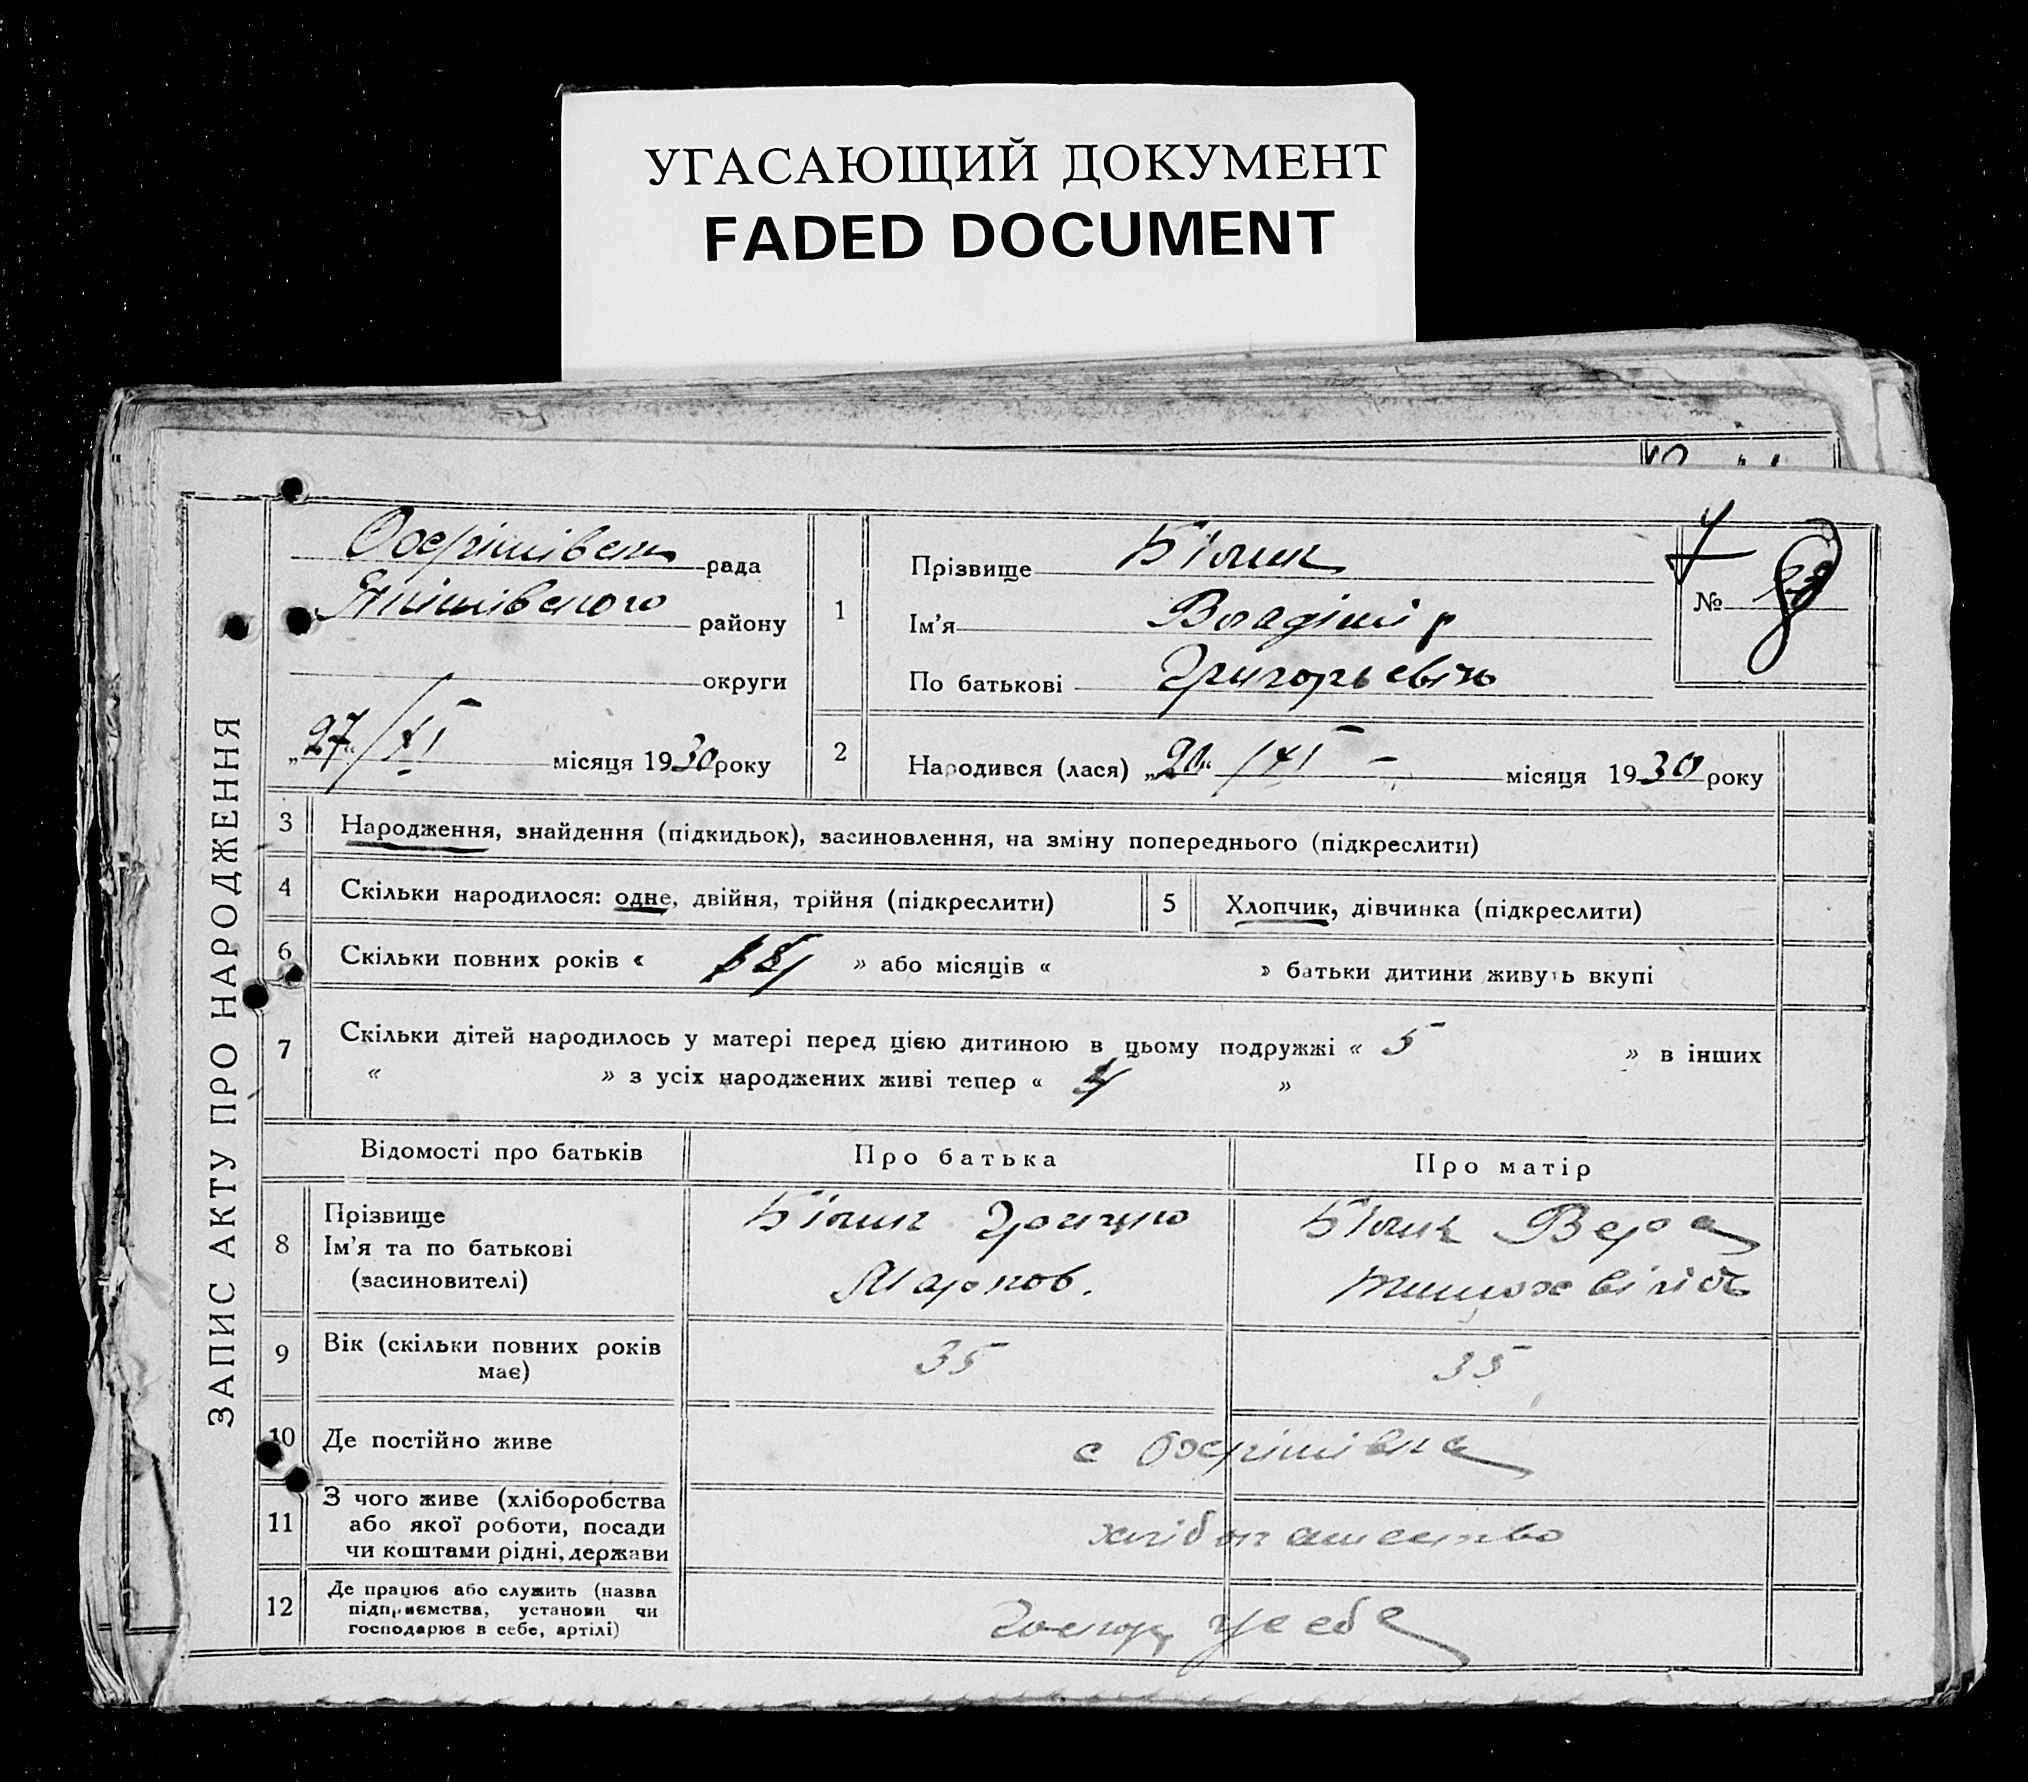 УГАСАЮЩИЙ ДОКУМЕНТ
FADED DOCUMENT
ЗАПИС АКТУ ПРО НАРОДЖЕННЯ
рада
району
округи
„27“/XI місяця 1930 року
1
Прізвище Білик
Ім'я Владімір
По батькові Григорьевіч
№
2
Народився (лася) „20“ /XI – місяця 1930 року
3 Народження, знайдення (підкидьок), засиновлення, на зміну попереднього (підкреслити)
4 Скільки народилося: одне, двійня, трійня (підкреслити)
5 Хлопчик, дівчинка (підкреслити)
6 Скільки повних років « » або місяців « » батьки дитини живуть вкупі
7 Скільки дітей народилось у матері перед цією дитиною в цьому подружжі « 5 » в інших
« » з усіх народжених живі тепер « 4 »
Відомості про батьків Про батька Про матір
8 Прізвище
Ім'я та по батькові
(засиновителі)
Білик Грицко
Марков.
Білик Вера
9 Вік (скільки повних років
має)
35 35
10 Де постійно живе
с Охерімівка
11 З чого живе (хліборобства
або якої роботи, посади
чи коштами рідні, держави
хлібопашество
12 Де працює або служить (назва
підприємства, установи чи
господарює в себе, артілі)
господ у себе